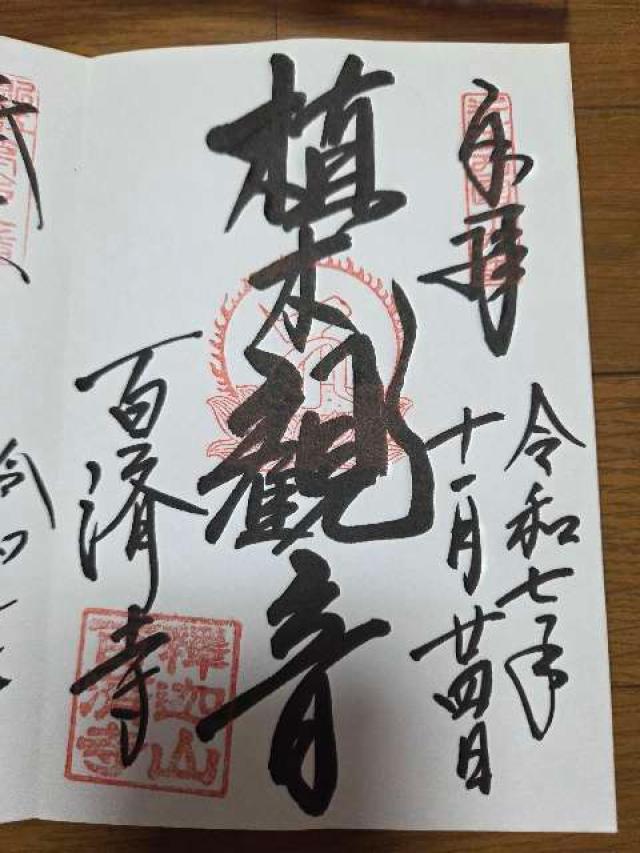 奉拝
令和七年
十一月廿四日
植木観音
百済寺
釋迦山
百済寺